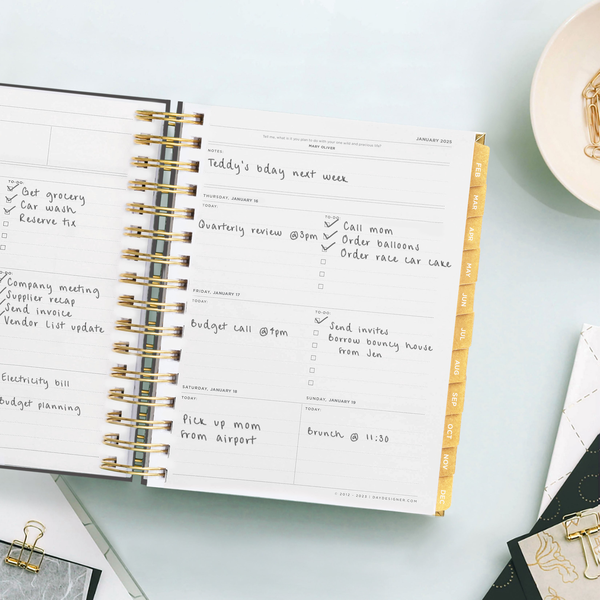 TO-DO:
Get grocery
Car wash
Reserve tix
TO-DO:
Company meeting
Supplier recap
Send invoice
Vendor List update
Electricity bill
Budget planning
JANUARY 2025
Tell me, what is it you plan to do with your one wild and precious life?
MARY OLIVER
NOTES:
Teddy's bday next week
THURSDAY, JANUARY 16
TODAY:
Quarterly review @3pm
TO-DO:
Call mom
Order balloons
Order race car cake
FRIDAY, JANUARY 17
TODAY:
Budget call @4pm
TO-DO:
Send invites
Borrow bouncy house
from Jen
SATURDAY, JANUARY 18
TODAY:
Pick up mom
from airport
SUNDAY, JANUARY 19
TODAY:
Brunch @ 11:30
DAYDESIGNER.COM
FEB
MAR
APR
MAY
JUN
JUL
AUG
SEP
OCT
NOV
DEC